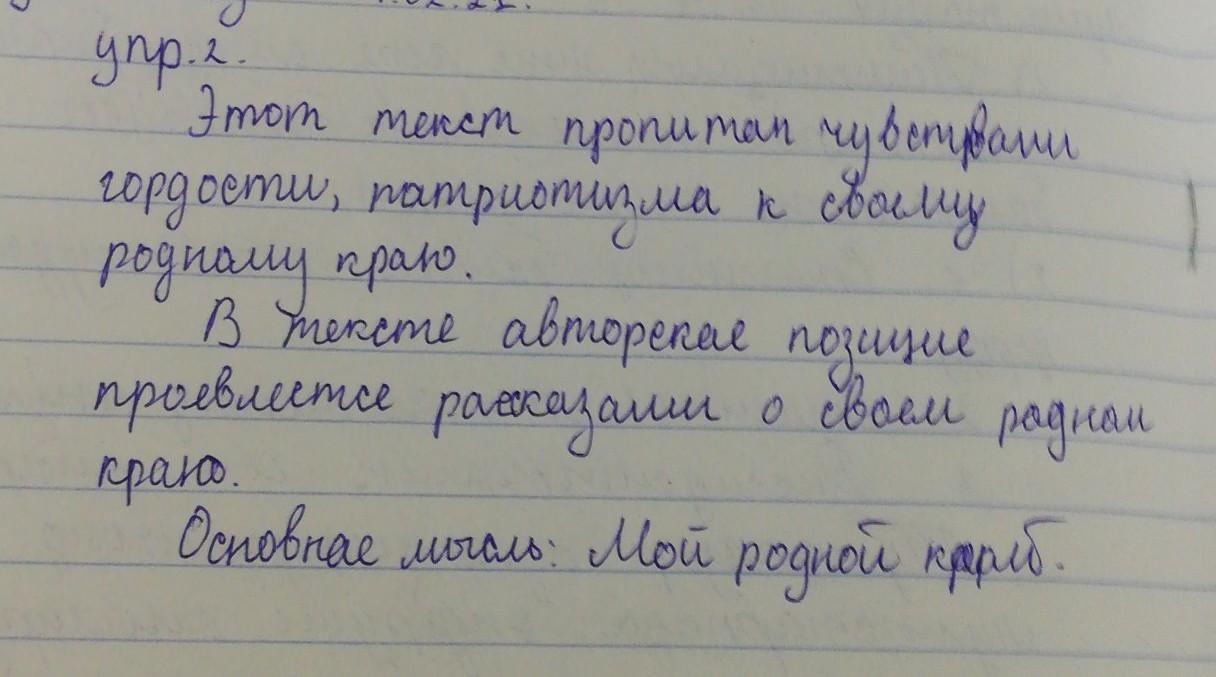 упр.2.
Этот текст пропитан чувствами
гордости, патриотизма к своему
родному краю.
В тексте авторская позиция
проявляется рассказами о своем родном
краю.
Основная мысль: Мой родной